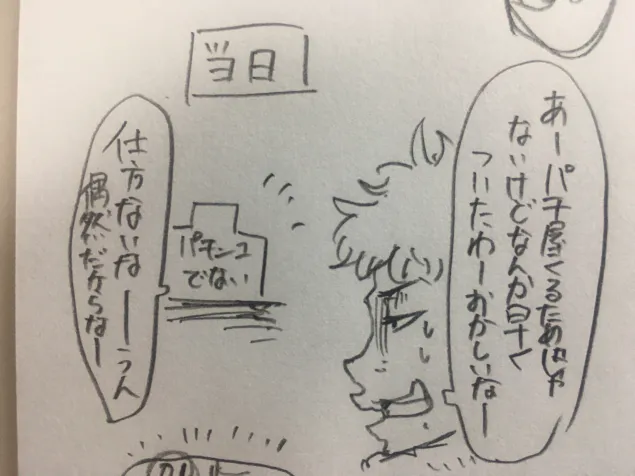 当日
あーパチ屋くるためじゃ
ないけどなんか早く
ついたわーおかしいなー
パチンコ
でない
仕方ないなーーうん
偶然だからなー